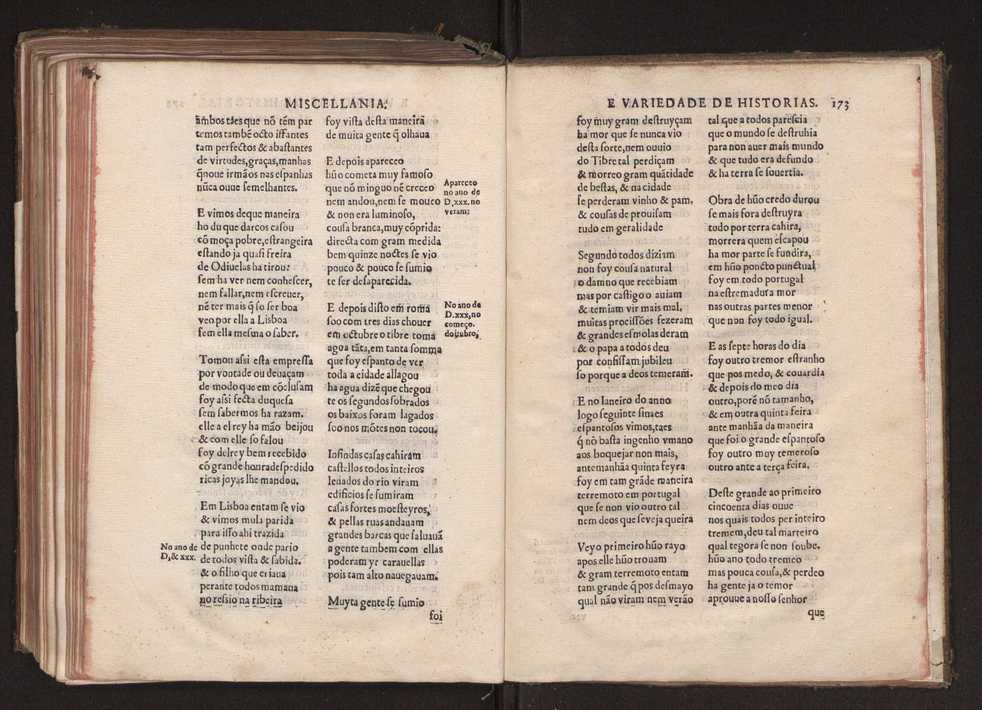 MISCELLANIA.
ambos tães que nõ têm par
temos tambẽ octo iffantes
tam perfectos & abastantes
de virtudes, graças, manhas
q̃ noue irmãos nas espanhas
nũca ouue semelhantes.
E vimos de que maneira
ho duque darcos casou
cõ moça pobre, estrangeira
estando ja quasi freira
de Odiuelas ha tirou:
sem ha ver nem conhescer,
nem fallar, nem escreuer,
nẽ ter mais q̃ so ser boa
veo por ella a Lisboa
sem ella mesma o saber.
Tomou assi esta empressa
por vontade ou deuaçam
de modo que em cõclusam
foy assi fecta duquesa
sem sabermos ha razam.
elle a el rey ha mão beijou
& com elle so falou
foy del rey bem recebido
cõ grande honra despedido
ricas joyas lhe mandou.
Em Lisboa entam se vio
& vimos mula parida
para isso ahi trazida
No ano de
D, & xxx.
de punhete onde pario
de todos vista & sabida.
& o filho que criaua
perante todos mamaua
no ressio na ribeira
foy vista desta maneira
de muita gente q̃ olhaua
E depois apareceo
hũo cometa muy famoso
que nõ minguo nẽ creceo
nem andou, nem se mouco
& non era luminoso,
cousa branca, muy cõprida:
directa com gram medida
bem quinze noctes se vio
pouco & pouco se sumio
te ser desaparecida.
Apareceo
no ano de
D, xxx. no
veram:
E depois disto em roma
soo com tres dias chouer
em octubre o tibre toma
agoa tãta, em tanta somma
que foy espanto de ver
toda a cidade allagou
ha agua dizẽ que chegou
te os segundos sobrados
os baixos foram lagados
soo nos mõtes non tocou.
No ano de
D.xxx, no
começo.
doutubro,
Infindas casas cahiram
castellos todos inteiros
leuados do rio viram
edificios se sumiram
casas fortes moesteyros,
& pellas ruas andauam
grandes barcas que saluauã
a gente tambem com ellas
poderam yr carauellas
pois tam alto nauegauam.
Muyta gente se sumio
foi
E VARIEDADE DE HISTORIAS. 173
foy muy gram destruyçam
ha mor que se nunca vio
desta sorte, nem ouuio
do Tibre tal perdiçam
& morreo gram quãtidade
de bestas, & na cidade
se perderam vinho & pam,
& cousas de prouisam
tudo em geralidade
Segundo todos diziam
non foy cousa natural
o damno que recebiam
mas por castigo o auiam
& temiam vir mais mal.
muitas procissões fezeram
& grandes esmolas deram
& o papa a todos deu
por confissam jubileu
so porque a deos temeram.
E no Ianeiro do anno
logo seguinte sinaes
espantosos vimos, taes
q̃ nõ basta ingenho vmano
aos boquejar non mais,
antemanhãa quinta feyra
foy em tam grãde maneira
terremoto em portugal
que se non vio outro tal
nem deos que se veja queira
Veyo primeiro hũo rayo
apos elle hũo trouam
& gram terremoto entam
tam grande q̃ pos desmayo
qual não viram nem verão
tal que a todos parescia
que o mundo se destruhia
para non auer mais mundo
& que tudo era defundo
& ha terra se souertia.
Obra de hũo credo durou
se mais fora destruyra
todo por terra cahira,
morrera quem escapou
ha mor parte se fundira,
em hũo poncto punctual
foy em todo portugal
na estremadura mor
nas outras partes menor
que non foy todo igual.
E as septe horas do dia
foy outro tremor estranho
que pos medo, & couardia
& depois do meo dia
outro, porẽ nõ tamanho,
& em outra quinta feira
ante manhãa da maneira
que foi o grande espantoso
foy outro muy temeroso
outro ante a terça feira.
Deste grande ao primeiro
cincoenta dias ouue
nos quais todos per inteiro
tremem, deu tal marteiro
qual tegora se non soube.
hũo ano todo tremeo
mas pouca cousa, & perdeo
ha gente ja o temor
aprouue a nosso senhor
que